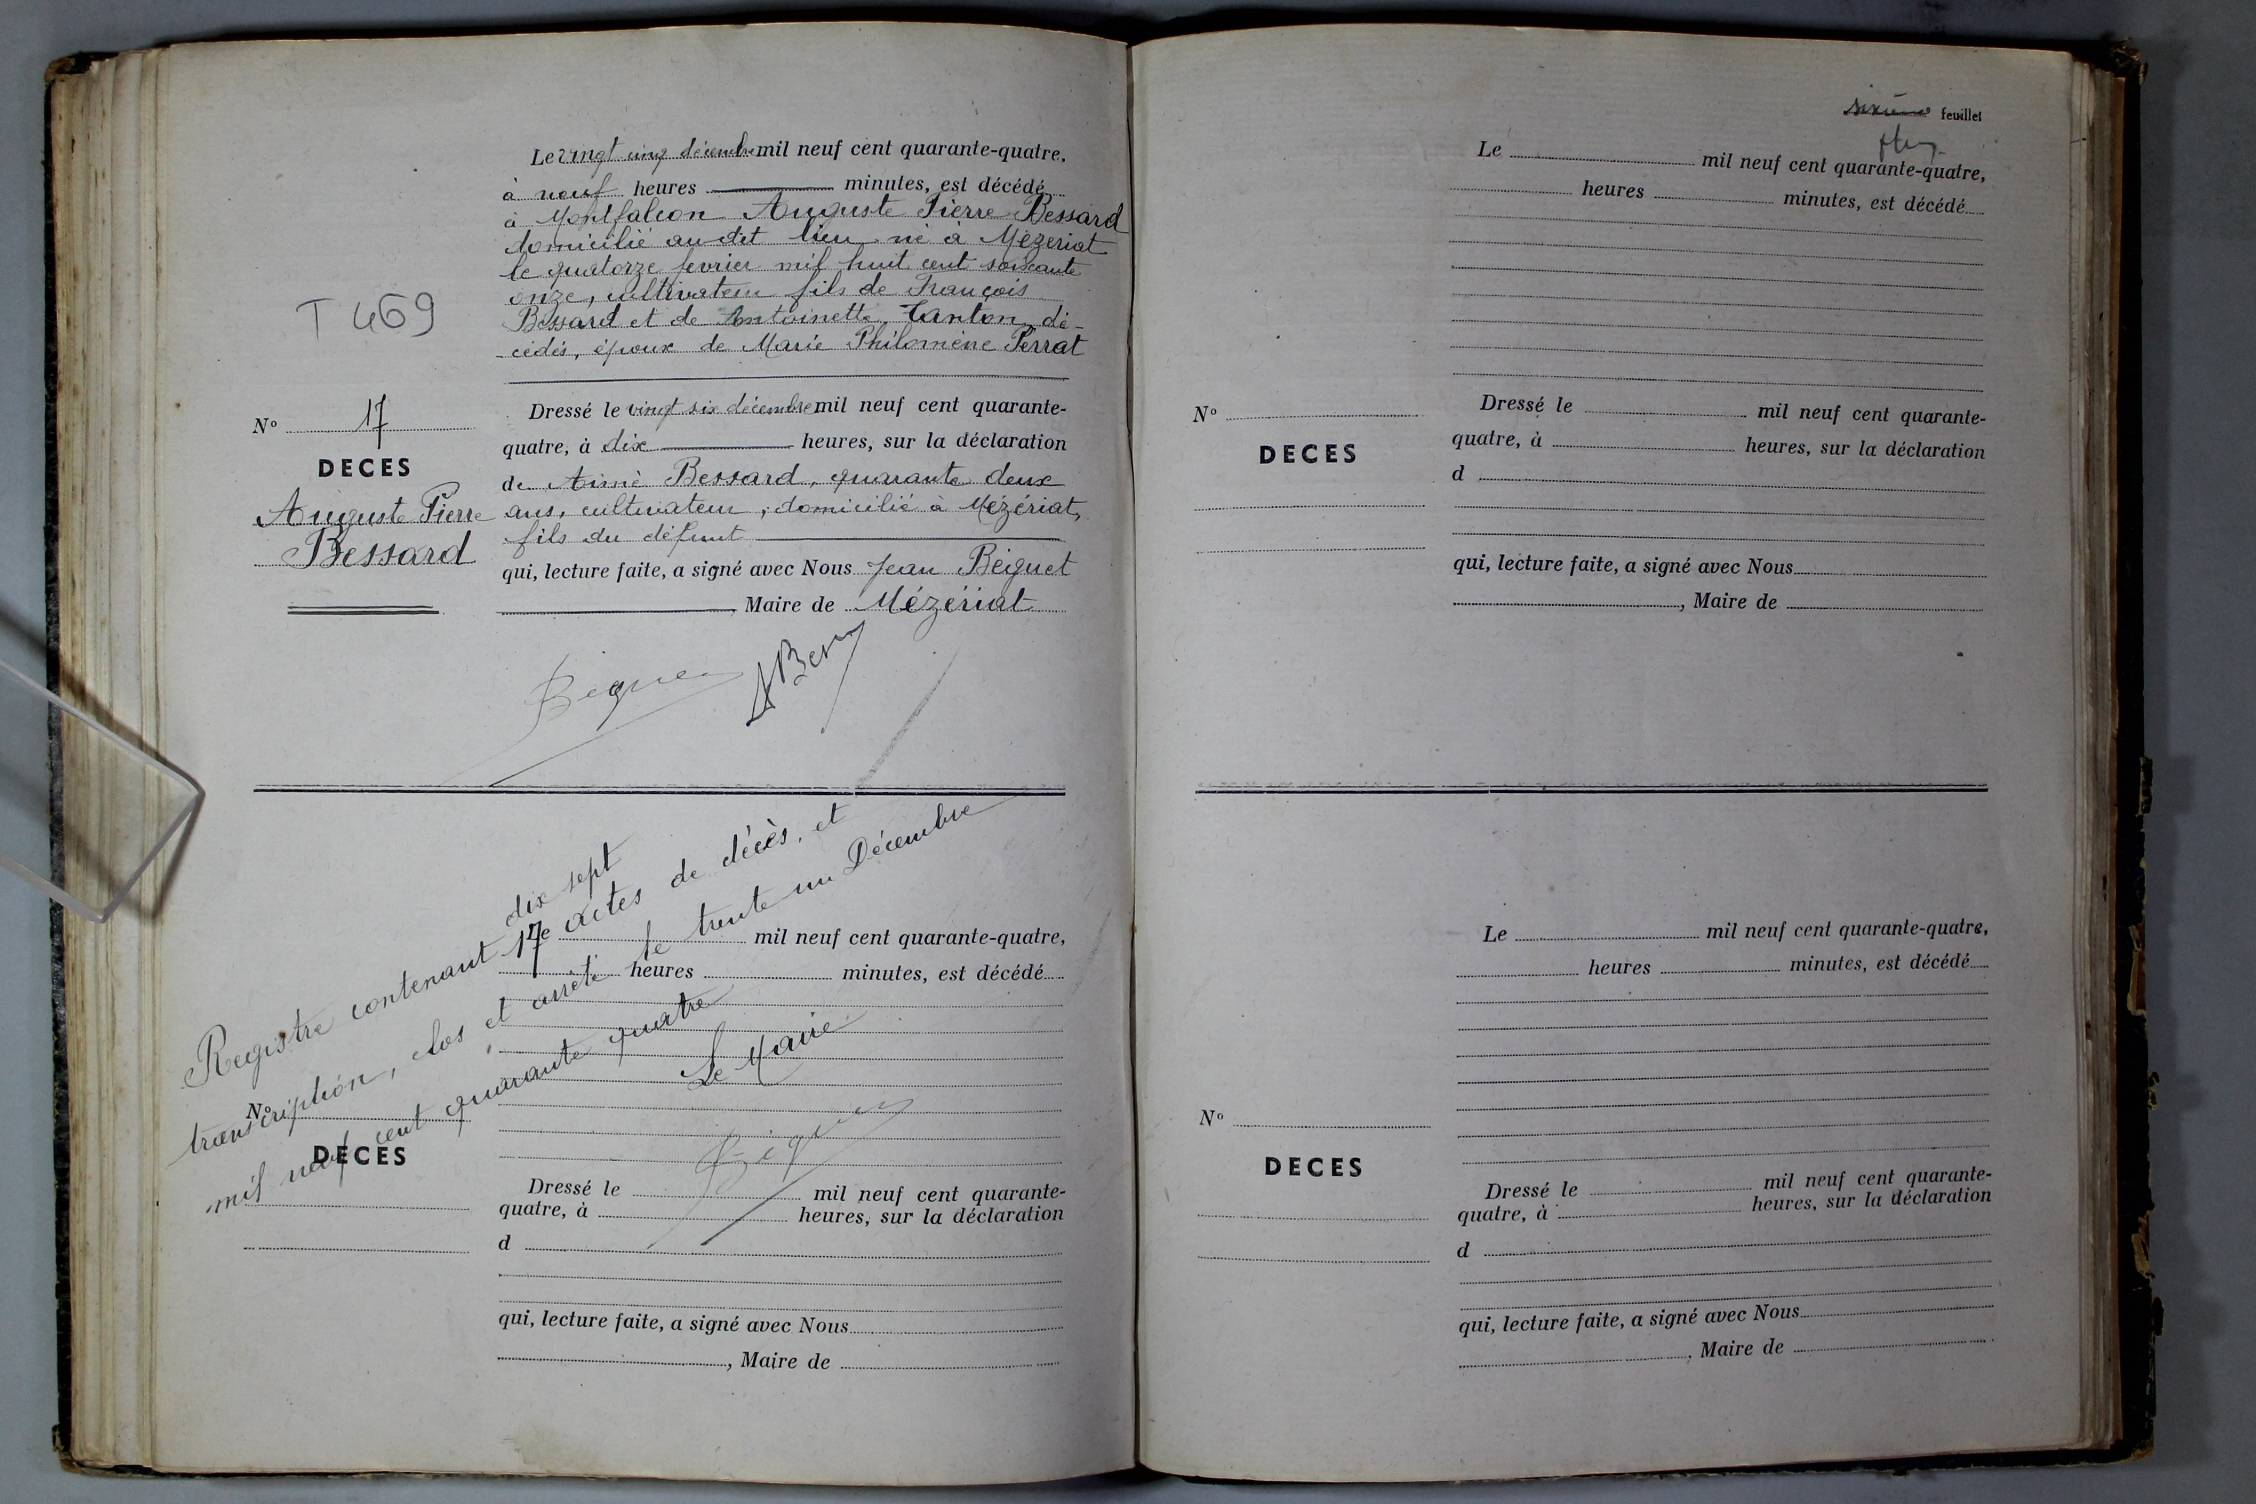 Le vingt cinq décembre mil neuf cent quarante-quatre,
à neuf heures minutes, est décédé
à Montfalcon Auguste Pierre Bessard
domicilié au dit lieu né à Mézériat
le quatorze fevrier mil huit cent soixante
onze, cultivateur fils de François
Bessard et de Antoinette Tanton dé-
cédés, époux de Marie Philomène Perrat
T 469
N° 17
DECES
Auguste Pierre
Bessard
Dressé le vingt six décembre mil neuf cent quarante-
quatre, à dix heures, sur la déclaration
de Aimé Bessard, quarante deux
ans, cultivateur, domicilié à Mézériat,
fils du défunt
qui, lecture faite, a signé avec Nous Jean Béguet
Maire de Mézériat
dix sept
Registre contenant 17 actes de décès, et
transcription, clos et arrêté le trente un Décembre
mil neuf cent quarante quatre
Le Maire
mil neuf cent quarante-quatre,
heures minutes, est décédé
N°
DECES
Dressé le mil neuf cent quarante-
quatre, à heures, sur la déclaration
d
qui, lecture faite, a signé avec Nous
, Maire de
sixième feuillet
Le mil neuf cent quarante-quatre,
heures minutes, est décédé
N°
DECES
Dressé le mil neuf cent quarante-
quatre, à heures, sur la déclaration
d
qui, lecture faite, a signé avec Nous
, Maire de
Le mil neuf cent quarante-quatre,
heures minutes, est décédé
N°
DECES
Dressé le mil neuf cent quarante-
quatre, à heures, sur la déclaration
d
qui, lecture faite, a signé avec Nous
, Maire de